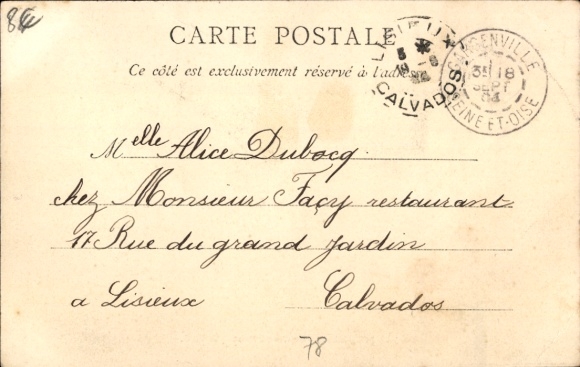 8€
CARTE POSTALE
Ce côté est exclusivement réservé à l'adresse
LISIEUX
CALVADOS
GARGENVILLE
18
SEPT
SEINE-ET-OISE
Melle Alice Dubocq
chez Monsieur Façy restaurant
17 Rue du grand Jardin
a Lisieux Calvados
78